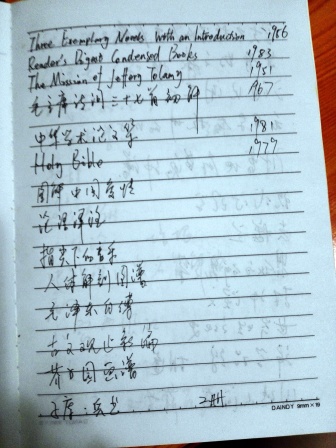 Three Exemplary Novels with an Introduction 1956
Reader's Digest Condensed Books 1983
The Mission of Jeffery Tolamy 1951
毛主席诗词三十七首初解 1967
中华学术论文集 1981
Holy Bible 1977
图解中国爱情
论语译注
指尖下的音乐
人体解剖图谱
毛泽东自传
古文观止新编
芥子园画谱
兵书 二册
DAINDY 9mm × 19